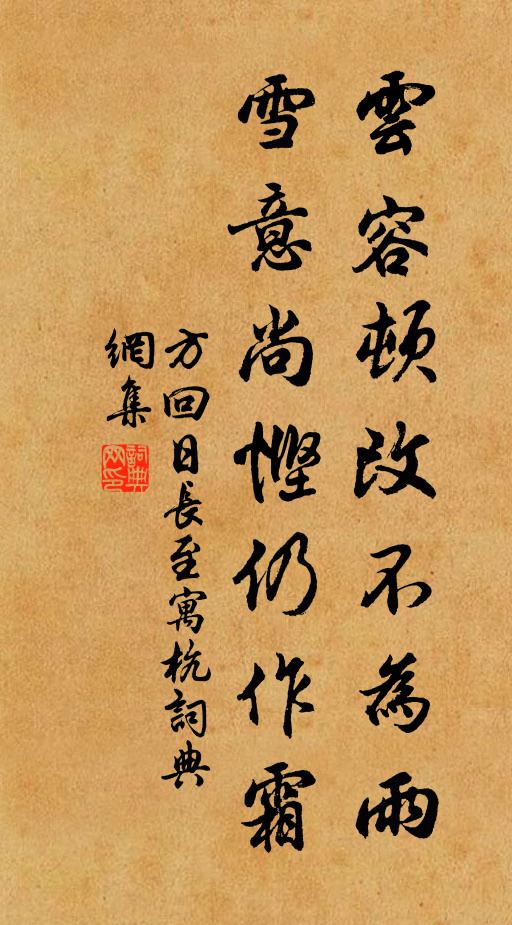 雲容頓改不為雨
雪意尚慳仍作霜
方回日長至寓杭詞典
網集
詞典網印